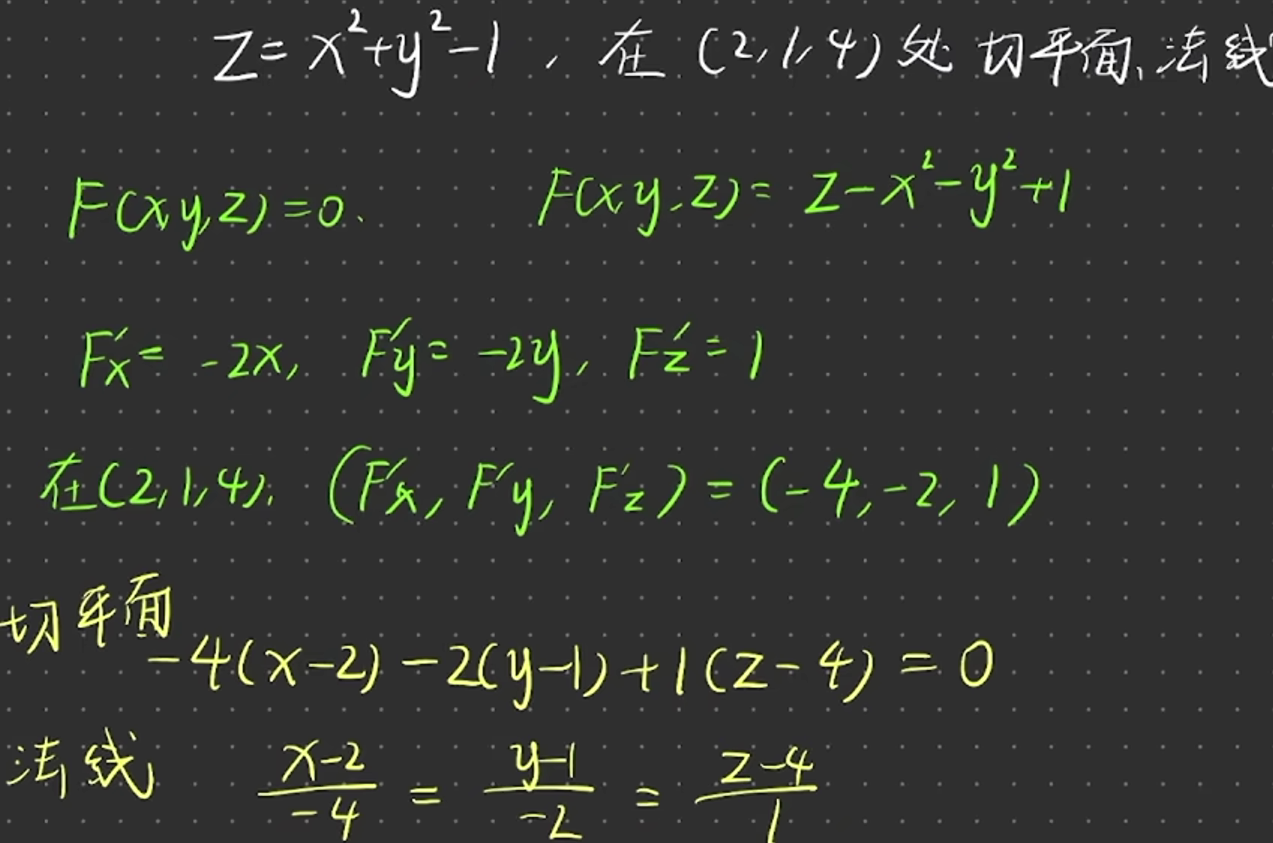 z=x²+y²-1，在(2,1,4)处切平面、法线
F(x,y,z)=0. F(x,y,z)=z-x²-y²+1
F'x=-2x, F'y=-2y, F'z=1
在(2,1,4). (F'x, F'y, F'z)=(-4,-2,1)
切平面
-4(x-2)-2(y-1)+1(z-4)=0
法线 (x-2)/(-4) = (y-1)/(-2) = (z-4)/1